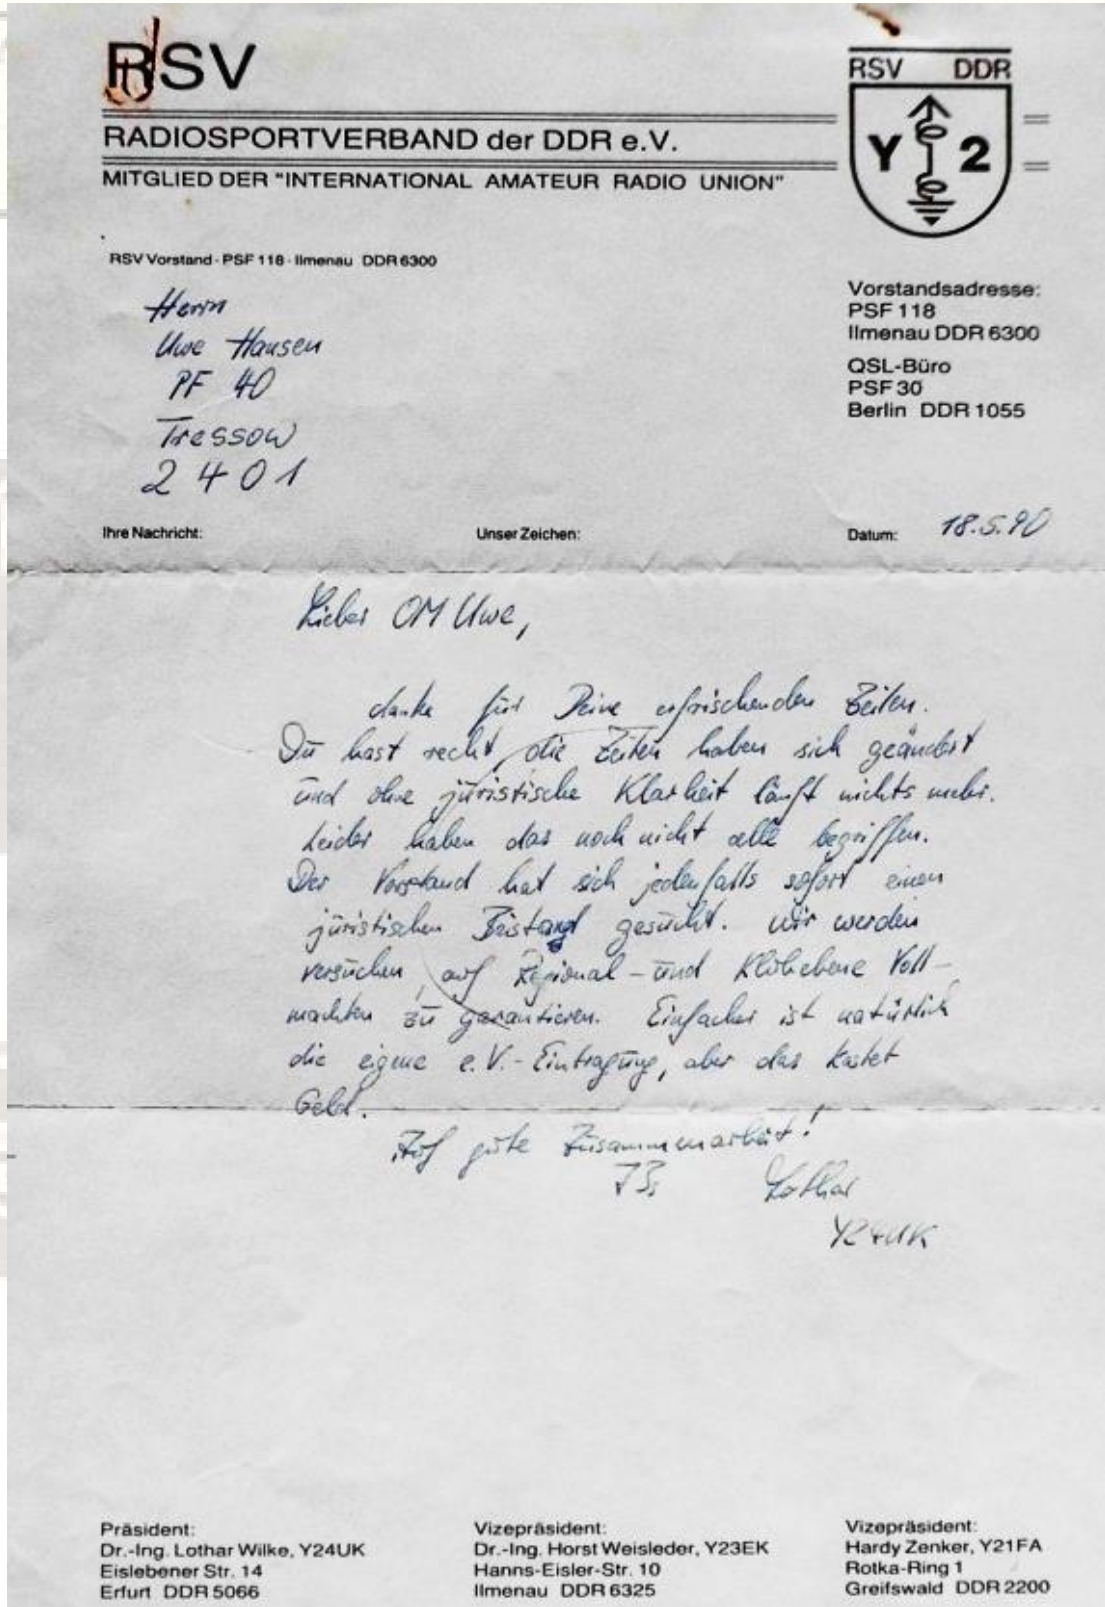 RSV
RADIOSPORTVERBAND der DDR e.V.
MITGLIED DER "INTERNATIONAL AMATEUR RADIO UNION"
RSV DDR
Y 2
RSV Vorstand · PSF 118 · Ilmenau DDR 6300
Herrn
Uwe Hansen
PF 40
Tressow
2401
Vorstandsadresse:
PSF 118
Ilmenau DDR 6300
QSL-Büro
PSF 30
Berlin DDR 1055
Ihre Nachricht: Unser Zeichen: Datum: 18.5.90
Lieber OM Uwe,
danke für Deine erfrischenden Zeilen.
Du hast recht, die Zeiten haben sich geändert
und ohne juristische Klarheit läuft nichts mehr.
Leider haben das noch nicht alle begriffen.
Der Vorstand hat sich jedenfalls sofort einen
juristischen Beistand gesucht. Wir werden
versuchen, auf Regional- und Klubebene Voll-
machten zu garantieren. Einfacher ist natürlich
die eigene e.V.-Eintragung, aber das kostet
Geld.
Auf gute Zusammenarbeit!
73s Lothar
Y24UK
Präsident:
Dr.-Ing. Lothar Wilke, Y24UK
Eislebener Str. 14
Erfurt DDR 5066
Vizepräsident:
Dr.-Ing. Horst Weisleder, Y23EK
Hanns-Eisler-Str. 10
Ilmenau DDR 6325
Vizepräsident:
Hardy Zenker, Y21FA
Rotka-Ring 1
Greifswald DDR 2200